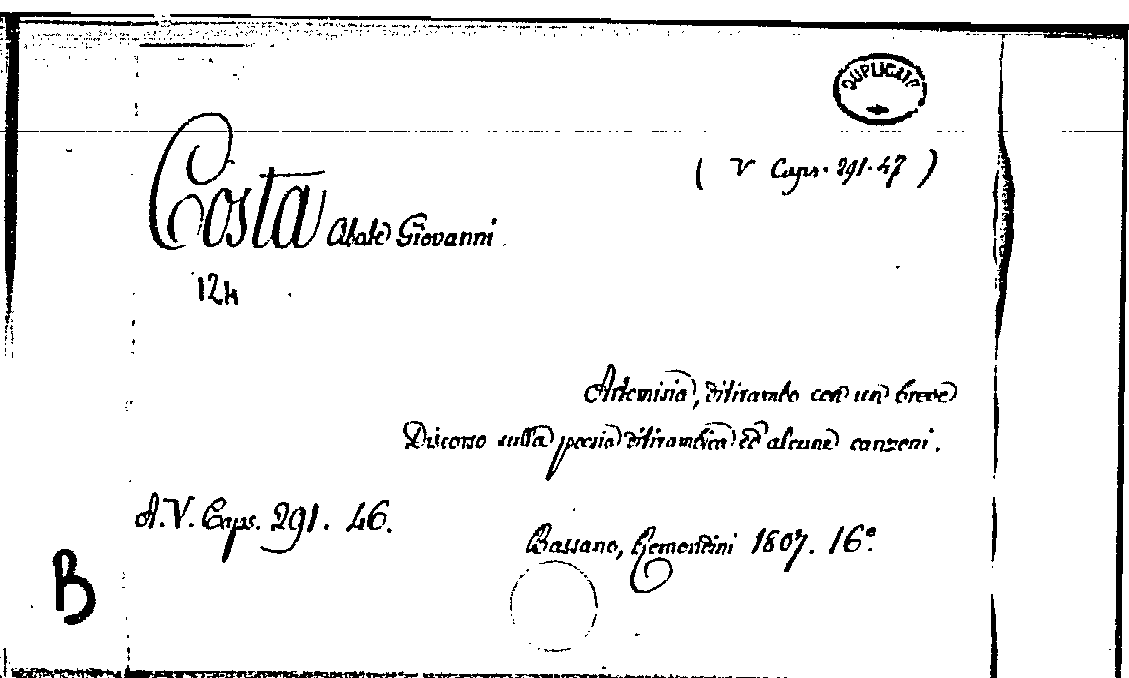 DUPLICATO
( V Caps. 291.47 )
Costa Abate Giovanni
124
Artemisia, ditirambo con un breve
Discorso sulla poesia ditirambica ed alcune canzoni.
A.V. Caps. 291. 46.
Bassano, Remondini 1807. 16º.
B